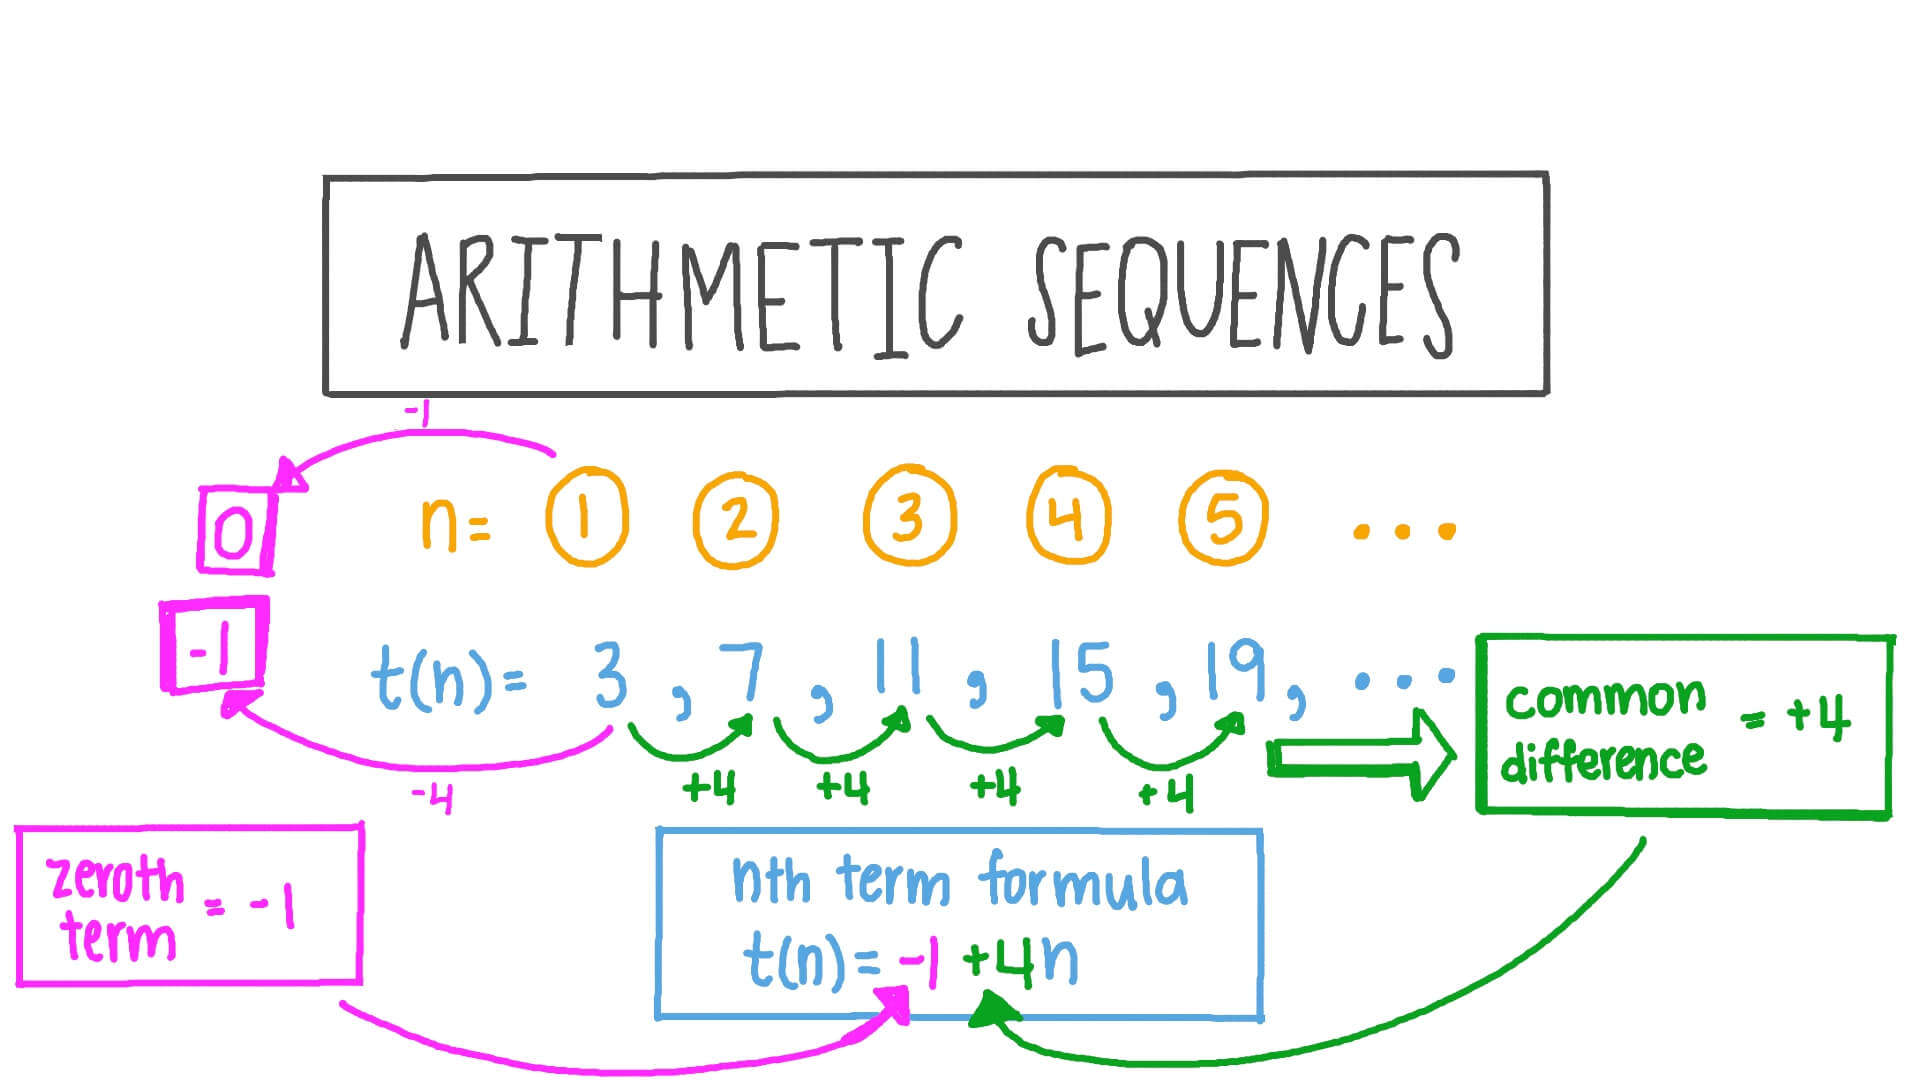 ARITHMETIC SEQUENCES
-1
0
n= 1 2 3 4 5 ...
-1
t(n)= 3, 7, 11, 15, 19, ...
-4
+4 +4 +4 +4
common
difference = +4
zeroth
term = -1
nth term formula
t(n)= -1 +4n